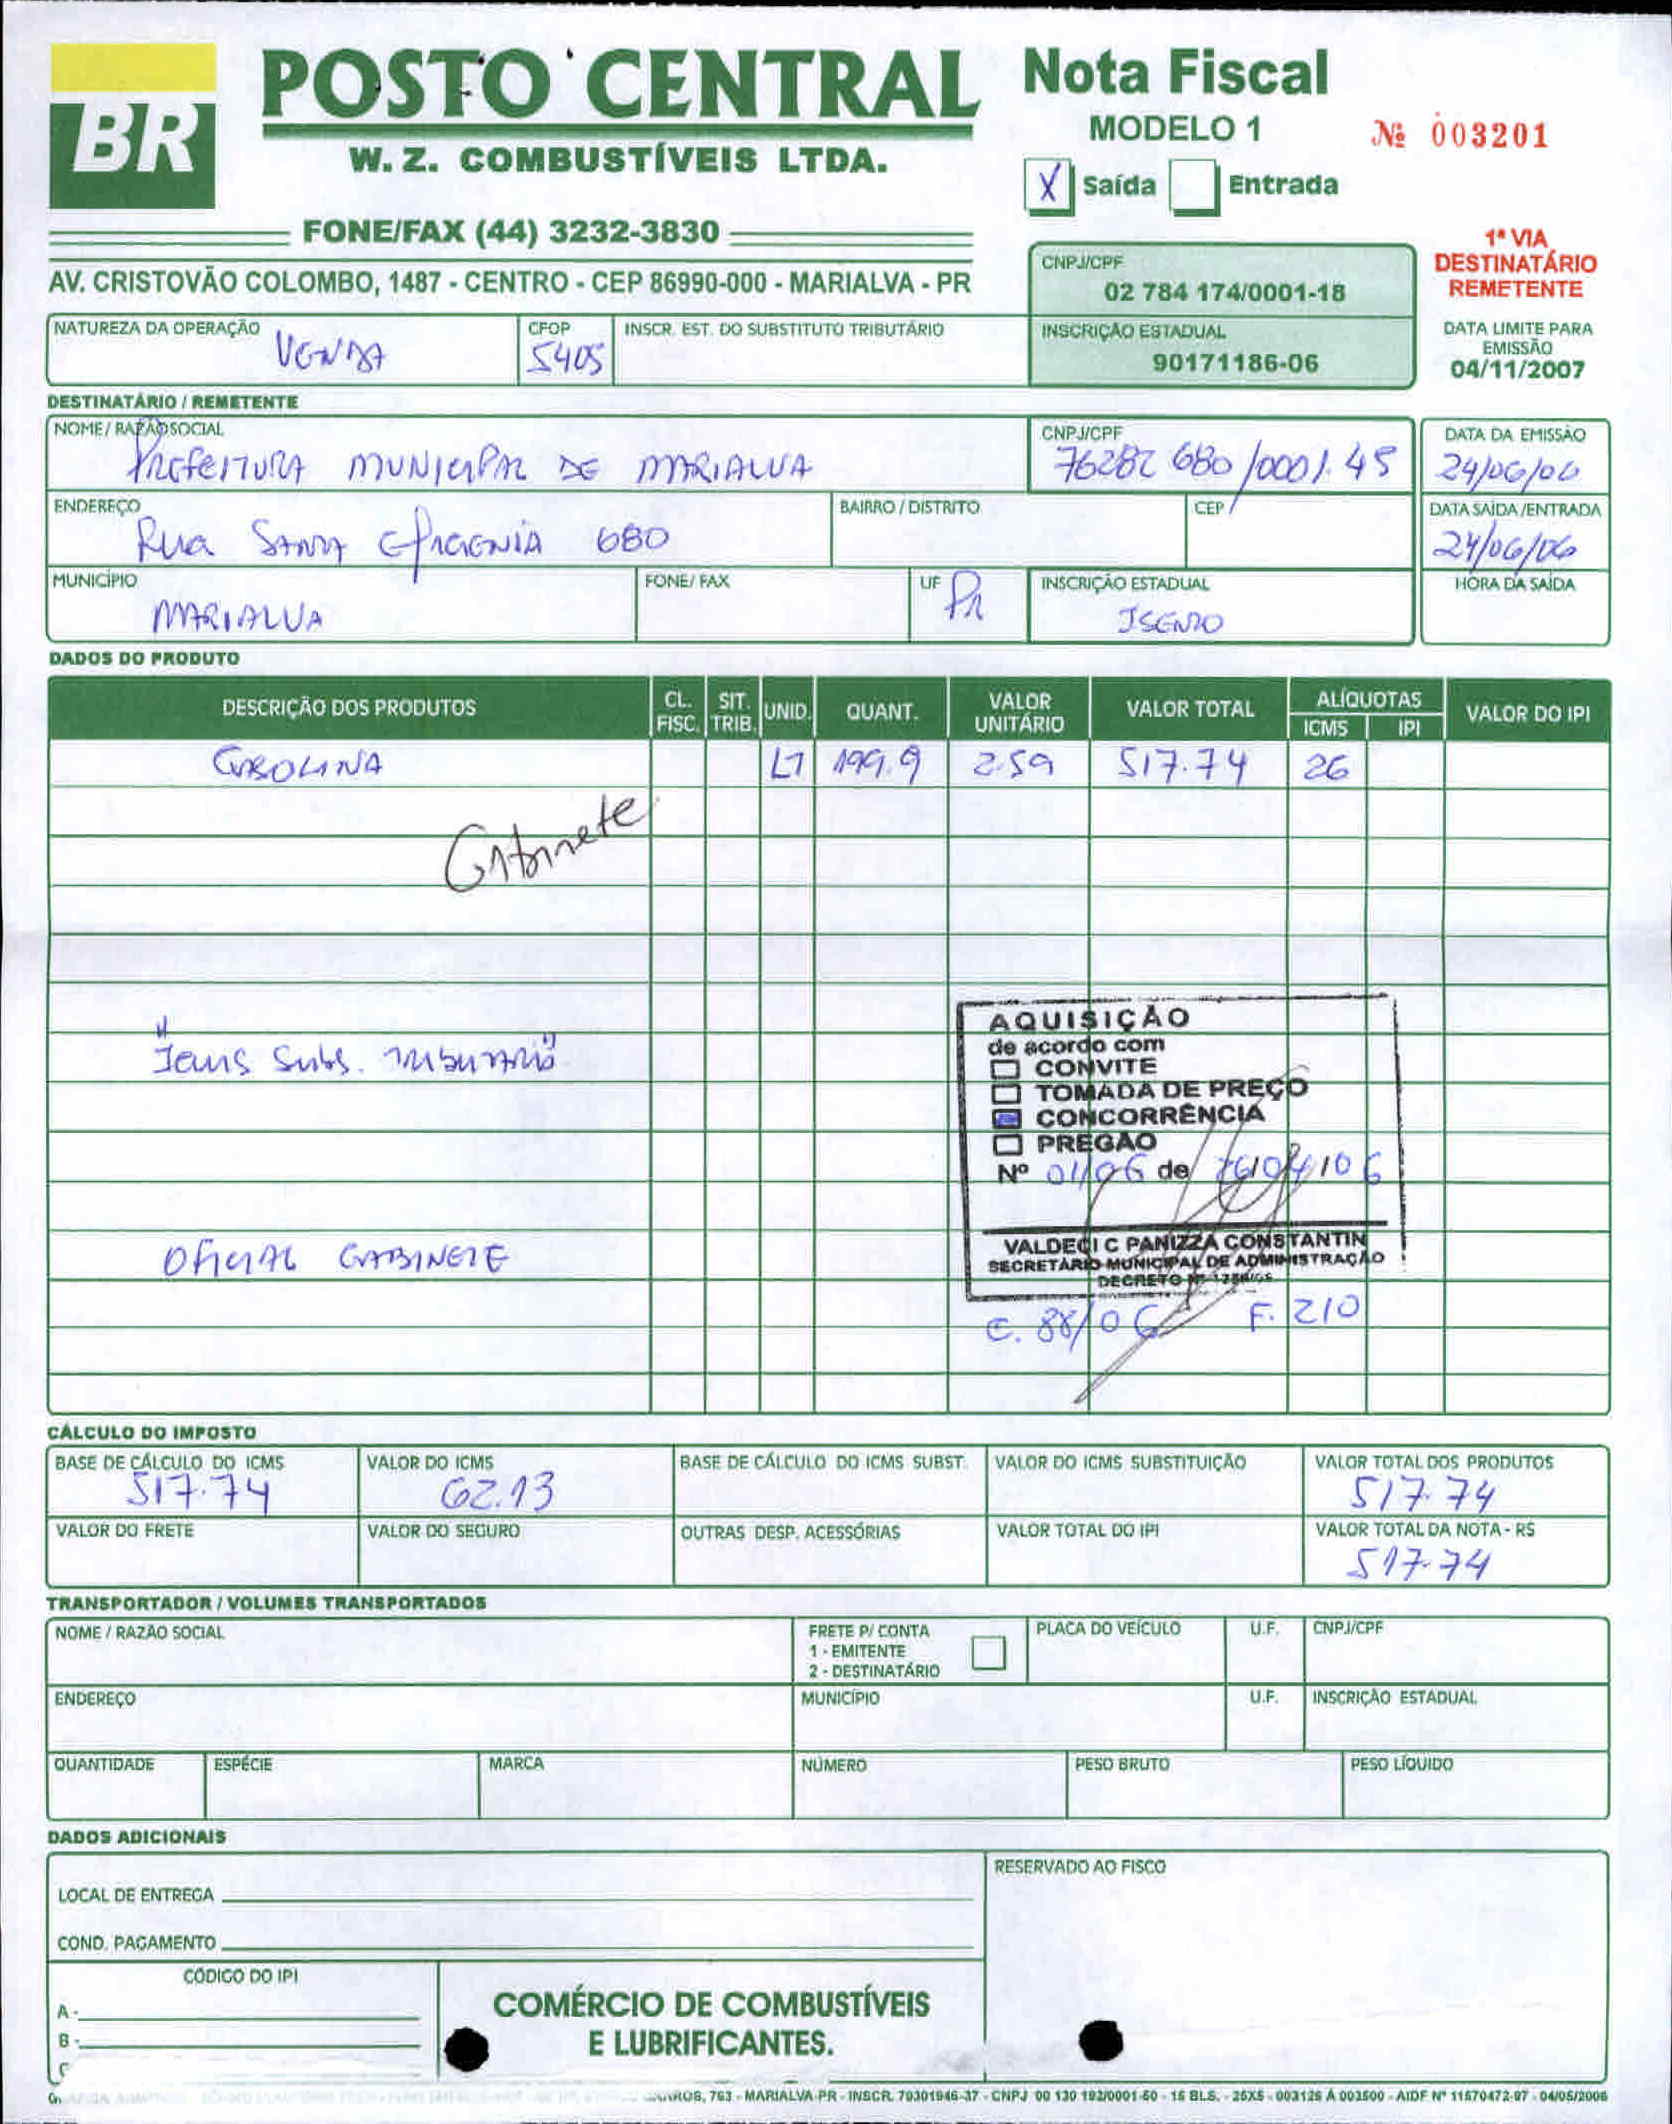 BR
POSTO CENTRAL
W. Z. COMBUSTÍVEIS LTDA.
FONE/FAX (44) 3232-3830
AV. CRISTOVÃO COLOMBO, 1487 - CENTRO - CEP 86990-000 - MARIALVA - PR
Nota Fiscal
MODELO 1
Nº 003201
X Saída Entrada
CNPJ/CPF
02 784 174/0001-18
INSCRIÇÃO ESTADUAL
90171186-06
1ª VIA
DESTINATÁRIO
REMETENTE
DATA LIMITE PARA
EMISSÃO
04/11/2007
NATUREZA DA OPERAÇÃO CFOP INSCR. EST. DO SUBSTITUTO TRIBUTÁRIO
VENDA 5405
DESTINATÁRIO / REMETENTE
NOME / RAZÃO SOCIAL CNPJ/CPF DATA DA EMISSÃO
PREFEITURA MUNICIPAL DE MARIALVA 76282 680/0001.45 24/06/06
ENDEREÇO BAIRRO / DISTRITO CEP DATA SAÍDA/ENTRADA
Rua SANTA EFIGENIA 680 24/06/06
MUNICÍPIO FONE/ FAX UF INSCRIÇÃO ESTADUAL HORA DA SAÍDA
MARIALVA PR ISENTO
DADOS DO PRODUTO
DESCRIÇÃO DOS PRODUTOS CL. FISC. SIT. TRIB. UNID. QUANT. VALOR UNITÁRIO VALOR TOTAL ALÍQUOTAS ICMS IPI VALOR DO IPI
GASOLINA LT 199.9 2.59 517.74 26
Gabinete
"Icms Subs. TRIBUTARIO"
OFICIAL GABINETE
AQUISIÇÃO
de acordo com
CONVITE
TOMADA DE PREÇO
CONCORRÊNCIA
PREGAO
Nº 01/06 de 26/04/06
VALDECI C PANIZZA CONSTANTIN
SECRETÁRIO MUNICIPAL DE ADMINISTRAÇÃO
DECRETO Nº
C. 88/06 F. 210
CÁLCULO DO IMPOSTO
BASE DE CÁLCULO DO ICMS VALOR DO ICMS BASE DE CÁLCULO DO ICMS SUBST. VALOR DO ICMS SUBSTITUIÇÃO VALOR TOTAL DOS PRODUTOS
517.74 62.13 517.74
VALOR DO FRETE VALOR DO SEGURO OUTRAS DESP. ACESSÓRIAS VALOR TOTAL DO IPI VALOR TOTAL DA NOTA - R$
517.74
TRANSPORTADOR / VOLUMES TRANSPORTADOS
NOME / RAZÃO SOCIAL FRETE P/ CONTA PLACA DO VEÍCULO U.F. CNPJ/CPF
1 - EMITENTE
2 - DESTINATÁRIO
ENDEREÇO MUNICÍPIO U.F. INSCRIÇÃO ESTADUAL
QUANTIDADE ESPÉCIE MARCA NÚMERO PESO BRUTO PESO LÍQUIDO
DADOS ADICIONAIS
RESERVADO AO FISCO
LOCAL DE ENTREGA
COND. PAGAMENTO
CÓDIGO DO IPI
A -
B -
C
COMÉRCIO DE COMBUSTÍVEIS
E LUBRIFICANTES.
763 - MARIALVA-PR - INSCR. 70301946-37 - CNPJ 00 130 192/0001-60 - 15 BLS. - 25X5 - 003126 Á 003500 - AIDF Nº 11570472-07 - 04/05/2006